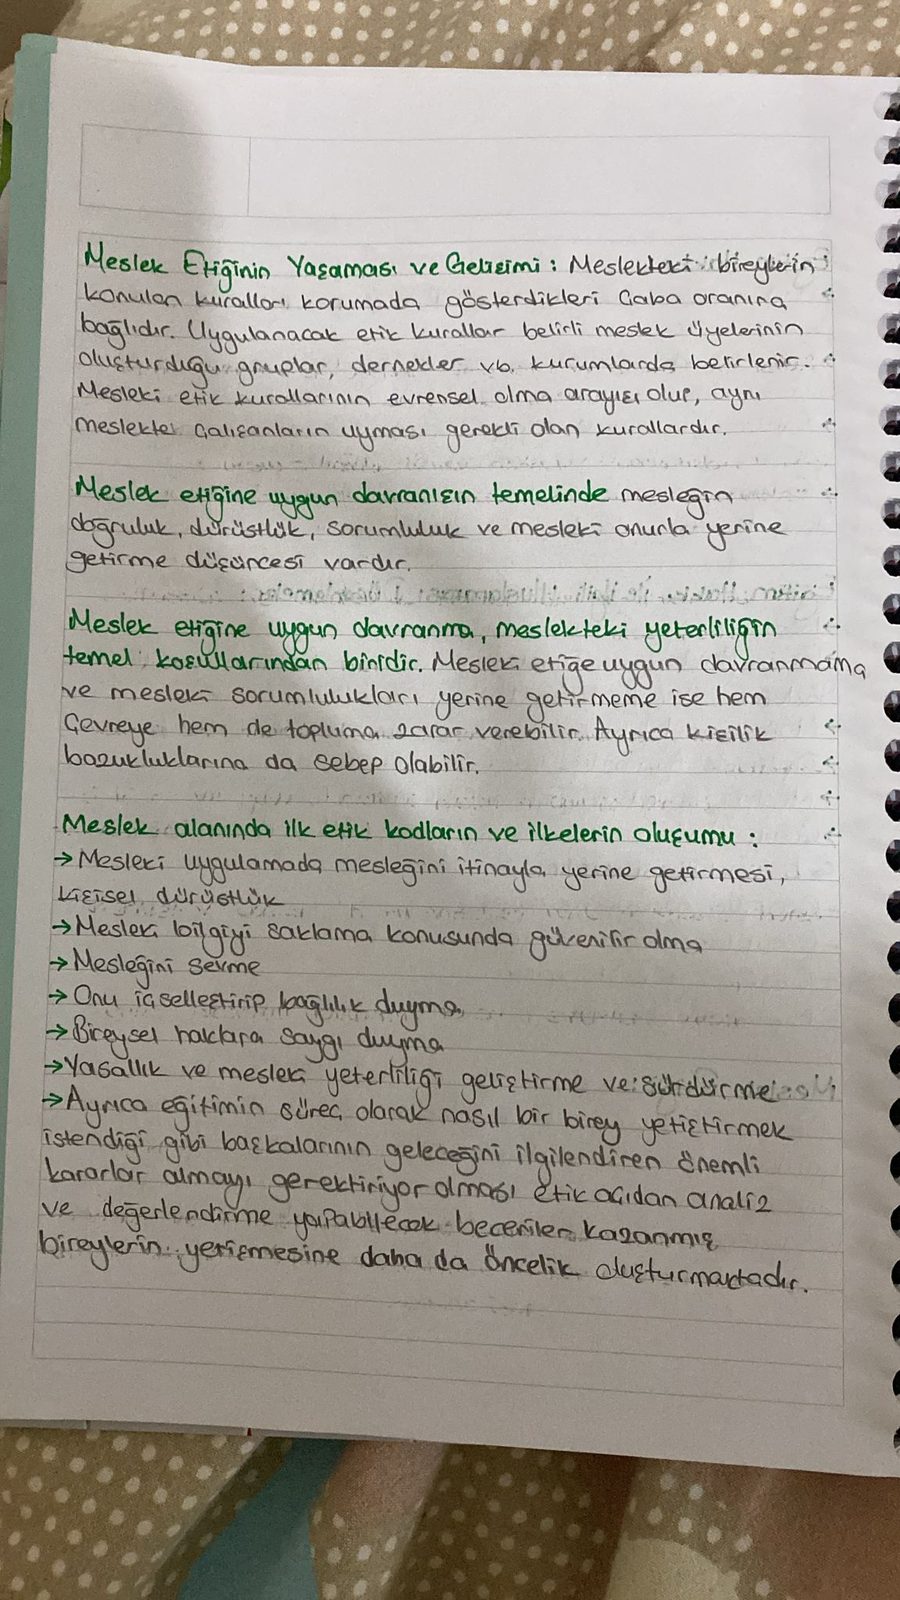 Meslek Etiğinin Yaşaması ve Gelişimi : Meslekteki bireylerin
konulan kuralları korumada gösterdikleri çaba oranına
bağlıdır. Uygulanacak etik kurallar belirli meslek üyelerinin
oluşturduğu gruplar, dernekler vb. kurumlarda belirlenir.
Mesleki etik kurallarının evrensel olma arayışı olup, aynı
meslekte çalışanların uyması gerekli olan kurallardır.
Meslek etiğine uygun davranışın temelinde mesleğin
doğruluk, dürüstlük, sorumluluk ve mesleki onurla yerine
getirme düşüncesi vardır.
Meslek etiğine uygun davranma, meslekteki yeterliliğin
temel koşullarından biridir. Mesleki etiğe uygun davranmama
ve mesleki sorumlulukları yerine getirmeme ise hem
çevreye hem de topluma zarar verebilir. Ayrıca kişilik
bozukluklarına da sebep olabilir.
Meslek alanında ilk etik kodların ve ilkelerin oluşumu :
→ Mesleki uygulamada mesleğini itinayla yerine getirmesi,
kişisel dürüstlük
→ Mesleki bilgiyi saklama konusunda güvenilir olma
→ Mesleğini sevme
→ Onu içselleştirip bağlılık duyma
→ Bireysel haklara saygı duyma
→ Yasallık ve mesleki yeterliliği geliştirme ve sürdürme
→ Ayrıca eğitimin süreç olarak nasıl bir birey yetiştirmek
istendiği gibi başkalarının geleceğini ilgilendiren önemli
kararlar almayı gerektiriyor olması etik açıdan analiz
ve değerlendirme yapabilecek beceriler kazanmış
bireylerin yetişmesine daha da öncelik oluşturmaktadır.